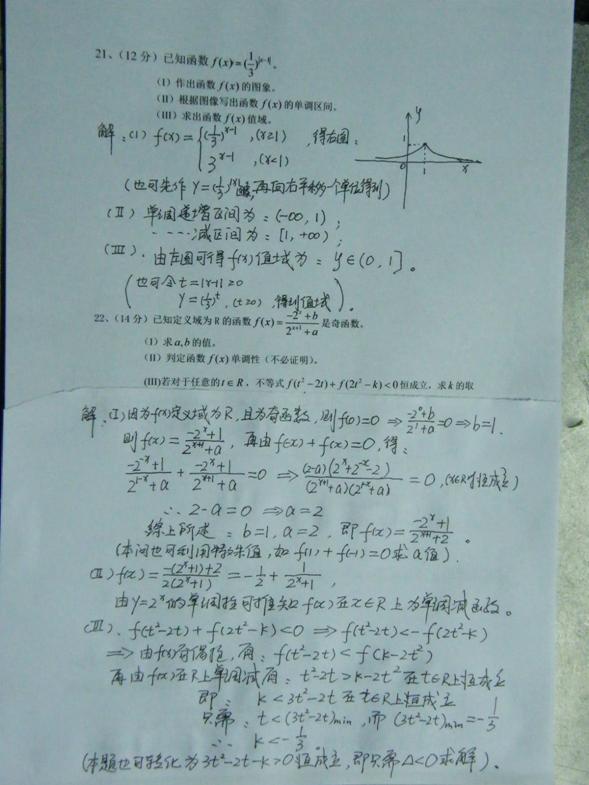 21、(12分) 已知函数 f(x)=(1/3)^|x-1|。
(I) 作出函数 f(x) 的图象。
(II) 根据图像写出函数 f(x) 的单调区间。
(III) 求出函数 f(x) 值域。
解:(I) f(x)={(1/3)^(x-1) ,(x≥1) 3^(x-1) ,(x<1) 得右图:
y 1 0 1 x
(也可先作 y=(1/3)^|x| 再向右平移一个单位得到)
(II) 单调递增区间为:(-∞, 1);
‥‥减区间为:[1, +∞);
(III). 由左图可得 f(x) 值域为: y∈(0, 1]。
(也可令 t=|x-1|≥0
y=(1/3)^t, (t≥0), 得到值域)。
22、(14分) 已知定义域为 R 的函数 f(x)=(-2^x+b)/(2^(x+1)+a) 是奇函数。
(I) 求 a,b 的值。
(II) 判定函数 f(x) 单调性(不必证明)。
(III)若对于任意的 t∈R,不等式 f(t²-2t)+f(2t²-k)<0 恒成立,求 k 的取
解:(I)因为f(x)定义域为R,且为奇函数,则f(0)=0 ⇒ (-2^0+b)/(2^1+a)=0 ⇒ b=1.
则 f(x)=(-2^x+1)/(2^(x+1)+a), 再由 f(-x)+f(x)=0, 得:
(-2^(-x)+1)/(2^(1-x)+a) + (-2^x+1)/(2^(x+1)+a) =0 ⇒ (2-a)(2^x+2^(-x)-2)/((2^(x+1)+a)(2^(1-x)+a)) = 0, (x∈R时恒成立)
∴ 2-a=0 ⇒ a=2
综上所述: b=1, a=2, 即 f(x)=(-2^x+1)/(2^(x+1)+2)。
(本问也可利用特殊值,如 f(1)+f(-1)=0求a值).
(II) f(x)=(-(2^x+1)+2)/(2(2^x+1))=-1/2+1/(2^x+1),
由y=2^x的单调性可推知f(x)在x∈R上为单调减函数。
(III). f(t²-2t)+f(2t²-k)<0 ⇒ f(t²-2t)<-f(2t²-k)
⇒ 由f(x)奇偶性,有: f(t²-2t)<f(k-2t²)
再由f(x)在R上单调减有: t²-2t>k-2t² 在t∈R上恒成立
即: k<3t²-2t 在t∈R上恒成立
只需: t<(3t²-2t)min, 而 (3t²-2t)min=-1/3
∴ k<-1/3.
(本题也可转化为3t²-2t-k>0恒成立,即只需Δ<0求解).